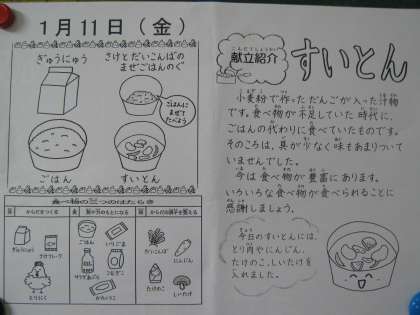 1月11日(金)
ぎゅうにゅう
さけとだいこんばの
まぜごはんのぐ
ごはんに
まぜて
たべよう
ごはん
すいとん
食べ物の三つのはたらき
からだをつくる
熱や力のもとになる
からだの調子を整える
ぎゅうにゅう
さけフレーク
とりにく
ごはん
いりごま
サラダあぶら
こむぎこ
かたくりこ
だいこんば
にんじん
たけのこ
しいたけ
献立紹介
こんだてしょうかい
すいとん
小麦粉で作っただんごが入った汁物
です。食べ物が不足していた時代に、
ごはんの代わりに食べていたものです。
そのころは、具が少なく味もあまりつい
ていませんでした。
今は食べ物が豊富にあります。
いろいろな食べ物が食べられることに
感謝しましょう。
今日のすいとんには、
とり肉やにんじん、
たけのこ、しいたけを
入れました。